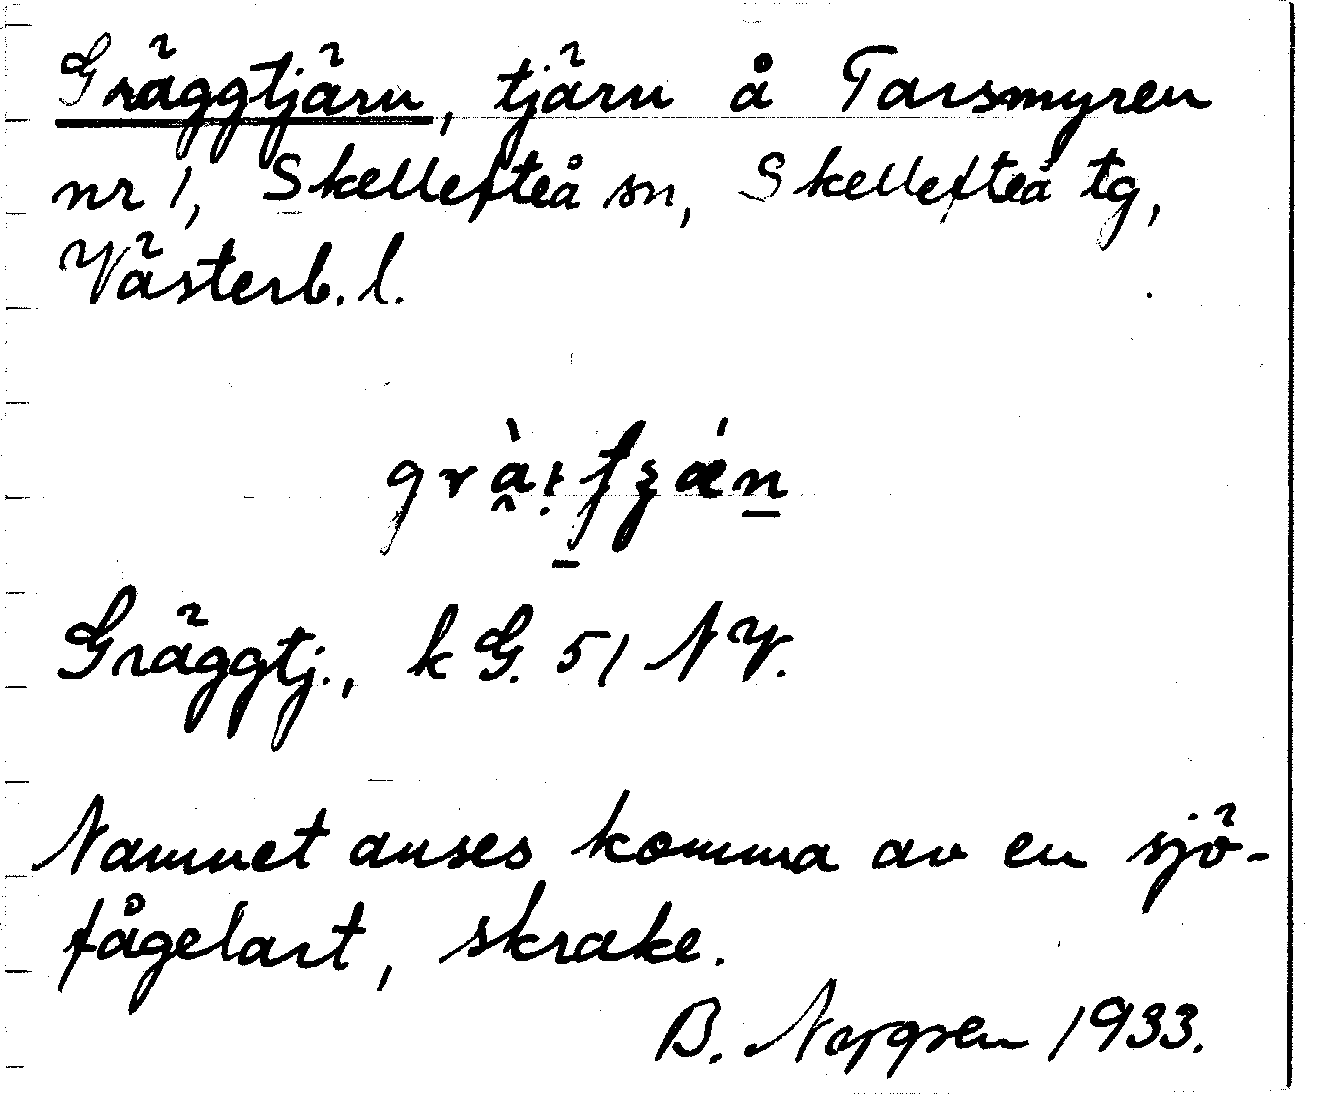 Gräggtjärn, tjärn å Tarsmyren
nr 1, Skellefteå sn, Skellefteå tg,
Västerb. l.
Gräggtj., k G. 51 NV.
Namnet anses komma av en sjö-
fågelart, skrake.
B. Nygren 1933.